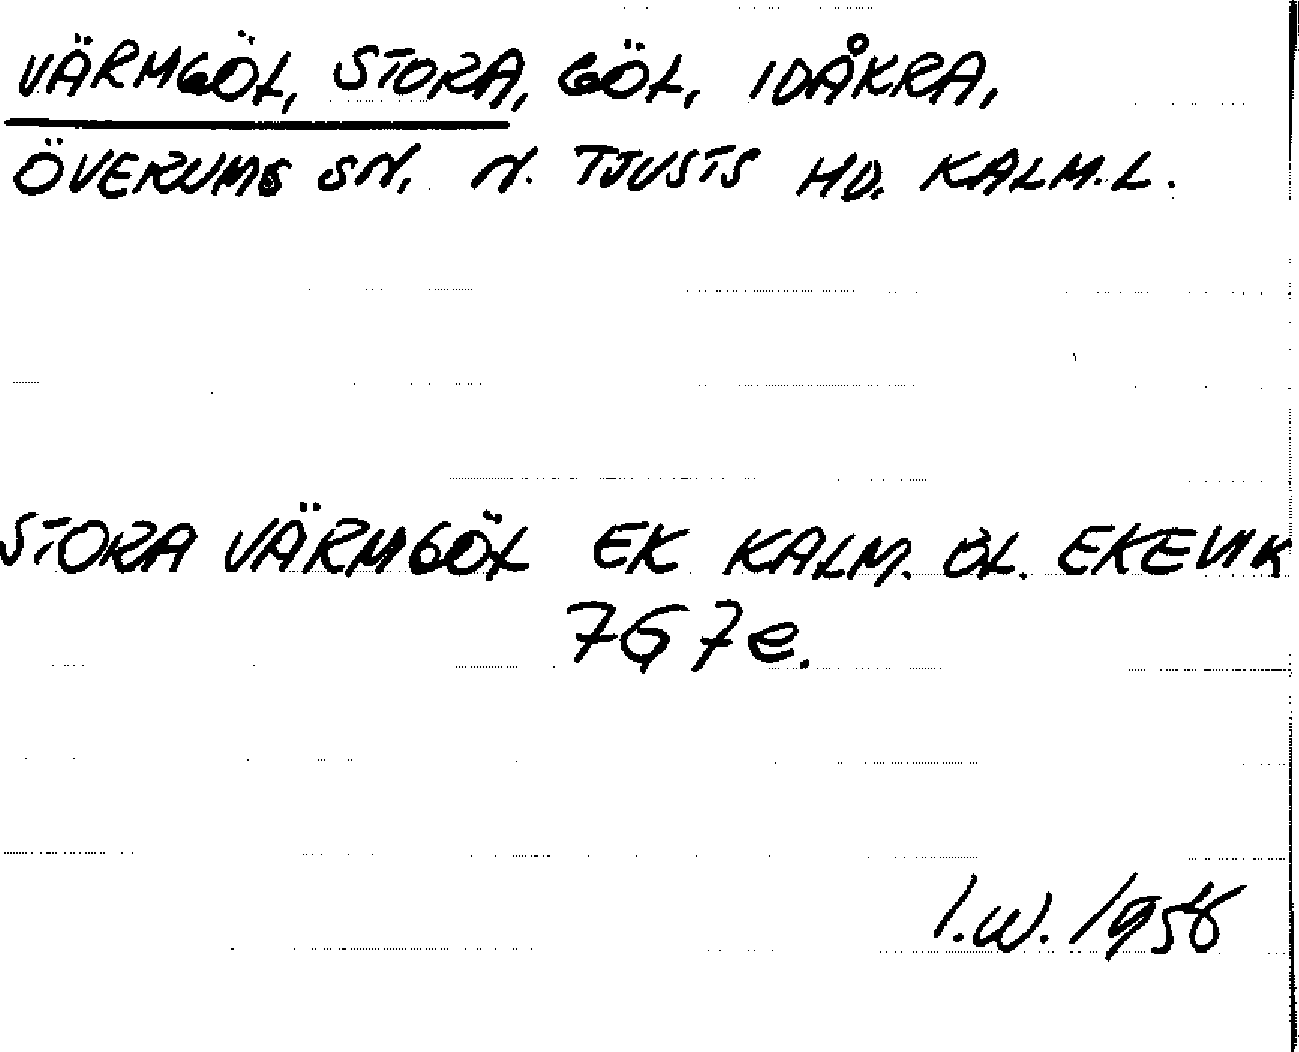 VÄRMGÖL, STORA, GÖL, IDÅKRA,
ÖVERUMS SN, N. TJUSTS HD. KALM.L.
STORA VÄRMGÖL EK KALM. ÖL. EKEVIK
7G7e.
I.W. 1958